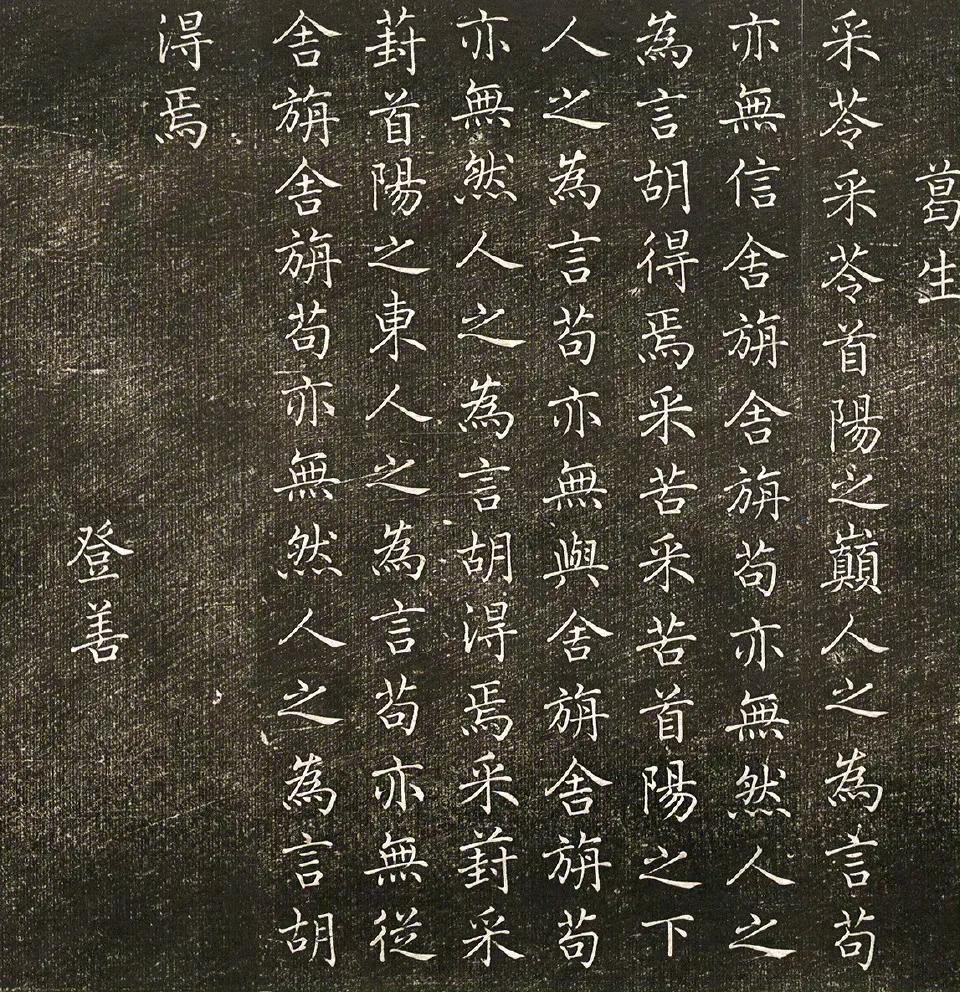 葛生
采苓采苓首陽之巔人之為言苟
亦無信舍旃舍旃苟亦無然人之
為言胡得焉采苦采苦首陽之下
人之為言苟亦無與舍旃舍旃苟
亦無然人之為言胡淂焉采葑采
葑首陽之東人之為言苟亦無從
舍旃舍旃苟亦無然人之為言胡
淂焉
登善